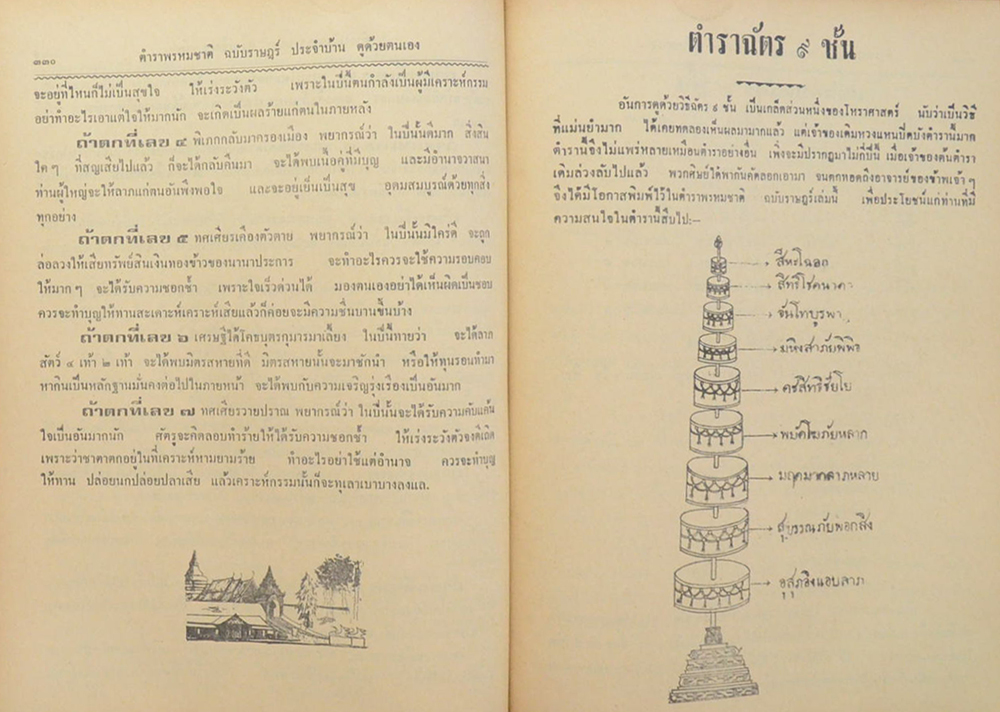 ๓๓๐
ตำราพรหมชาติ ฉบับราษฎร์ ประจำบ้าน ดูด้วยตนเอง
จะอยู่ที่ไหนก็ไม่เป็นสุขใจ ให้เร่งระวังตัว เพราะในปีนี้ตนกำลังเป็นผู้มีเคราะห์กรรม
อย่าทำอะไรเอาแต่ใจให้มากนัก จะเกิดเป็นผลร้ายแก่ตนในภายหลัง
ถ้าตกที่เลข ๔ พิเภกกลับมาครองเมือง พยากรณ์ว่า ในปีนั้นดีมาก สิ่งสิน
ใดๆ ที่สญเสียไปแล้ว ก็จะได้กลับคืนมา จะได้พบเนื้อคู่ที่มีบุญ และมีอำนาจวาสนา
ท่านผู้ใหญ่จะให้ลาภแก่ตนอันพึงพอใจ และจะอยู่เย็นเป็นสุข อุดมสมบูรณ์ด้วยทุกสิ่ง
ทุกอย่าง
ถ้าตกที่เลข ๕ ทศเศียรเคืองตัวตาย พยากรณ์ว่า ในปีนั้นมิใคร่ดี จะถูก
ล่อลวงให้เสียทรัพย์สินเงินทองข้าวของนานาประการ จะทำอะไรควรจะใช้ความรอบคอบ
ให้มากๆ จะได้รับความชอกช้ำ เพราะใจเร็วด่วนได้ มองตนเองอย่าได้เห็นผิดเป็นชอบ
ควรจะทำบุญให้ทานสะเดาะห์เคราะห์เสียแล้วก็ค่อยจะมีความชื่นบานขึ้นบ้าง
ถ้าตกที่เลข ๖ เศรษฐีได้โคธบุตรกุมารมาเลี้ยง ในปีนี้ทายว่า จะได้ลาภ
สัตว์ ๔ เท้า ๒ เท้า จะได้พบมิตรสหายที่ดี มิตรสหายนั้นจะมาชักนำ หรือให้ทุนรอนทำมา
หากินเป็นหลักฐานมั่นคงต่อไปในภายหน้า จะได้พบกับความเจริญรุ่งเรืองเป็นอันมาก
ถ้าตกที่เลข ๗ ทศเศียรวายปราณ พยากรณ์ว่า ในปีนั้นจะได้รับความคับแค้น
ใจเป็นอันมากนัก ศัตรูจะคิดลอบทำร้ายให้ได้รับความชอกช้ำ ให้เร่งระวังตัวจงดีเถิด
เพราะว่าชาตาตกอยู่ในที่เคราะห์หามยามร้าย ทำอะไรอย่าใช้แต่อำนาจ ควรจะทำบุญ
ให้ทาน ปล่อยนกปล่อยปลาเสีย แล้วเคราะห์กรรมนั้นก็จะทุเลาเบาบางลงแล.
ตำราฉัตร ๙ ชั้น
อันการดูด้วยวิธีฉัตร ๙ ชั้น เป็นเกล็ดส่วนหนึ่งของโหราศาสตร์ นับว่าเป็นวิธี
ที่แม่นยำมาก ได้เคยทดลองเห็นผลมามากแล้ว แต่เจ้าของเดิมหวงแหนปิดบังตำรานี้มาก
ตำรานี้จึงไม่แพร่หลายเหมือนตำราอย่างอื่น เพิ่งจะมีปรากฏมาไม่กี่ปีนี้ เมื่อเจ้าของต้นตำรา
เดิมล่วงลับไปแล้ว พวกศิษย์ได้พากันคัดลอกเอามา จนตกทอดถึงอาจารย์ของข้าพเจ้าๆ
จึงได้มีโอกาสพิมพ์ไว้ในตำราพรหมชาติ ฉบับราษฎร์เล่มนี้ เพื่อประโยชน์แก่ท่านที่มี
ความสนใจในตำรานี้สืบไป:—
สีหะโฉลก
สิทธิโชค
จันโทบุรพา
มหิงสาภัยพิพิธ
คชสิทธิชัยโย
พยัคโฆภัยหลาก
ลาภหลาย
สุบรรณภัยพอกสิง
อุสุภอิงแอบลาภ